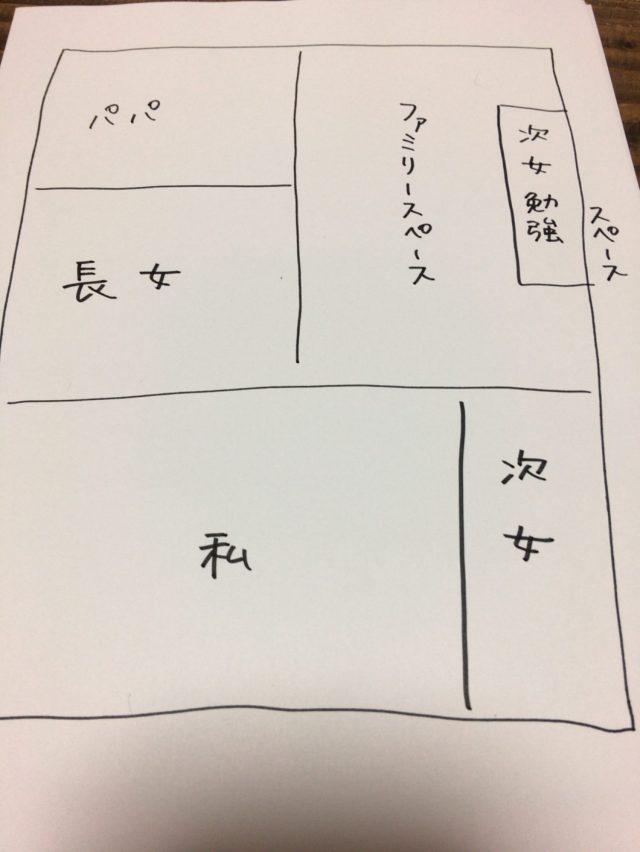 パパ
長女
ファミリースペース
次女勉強
スペース
私
次女